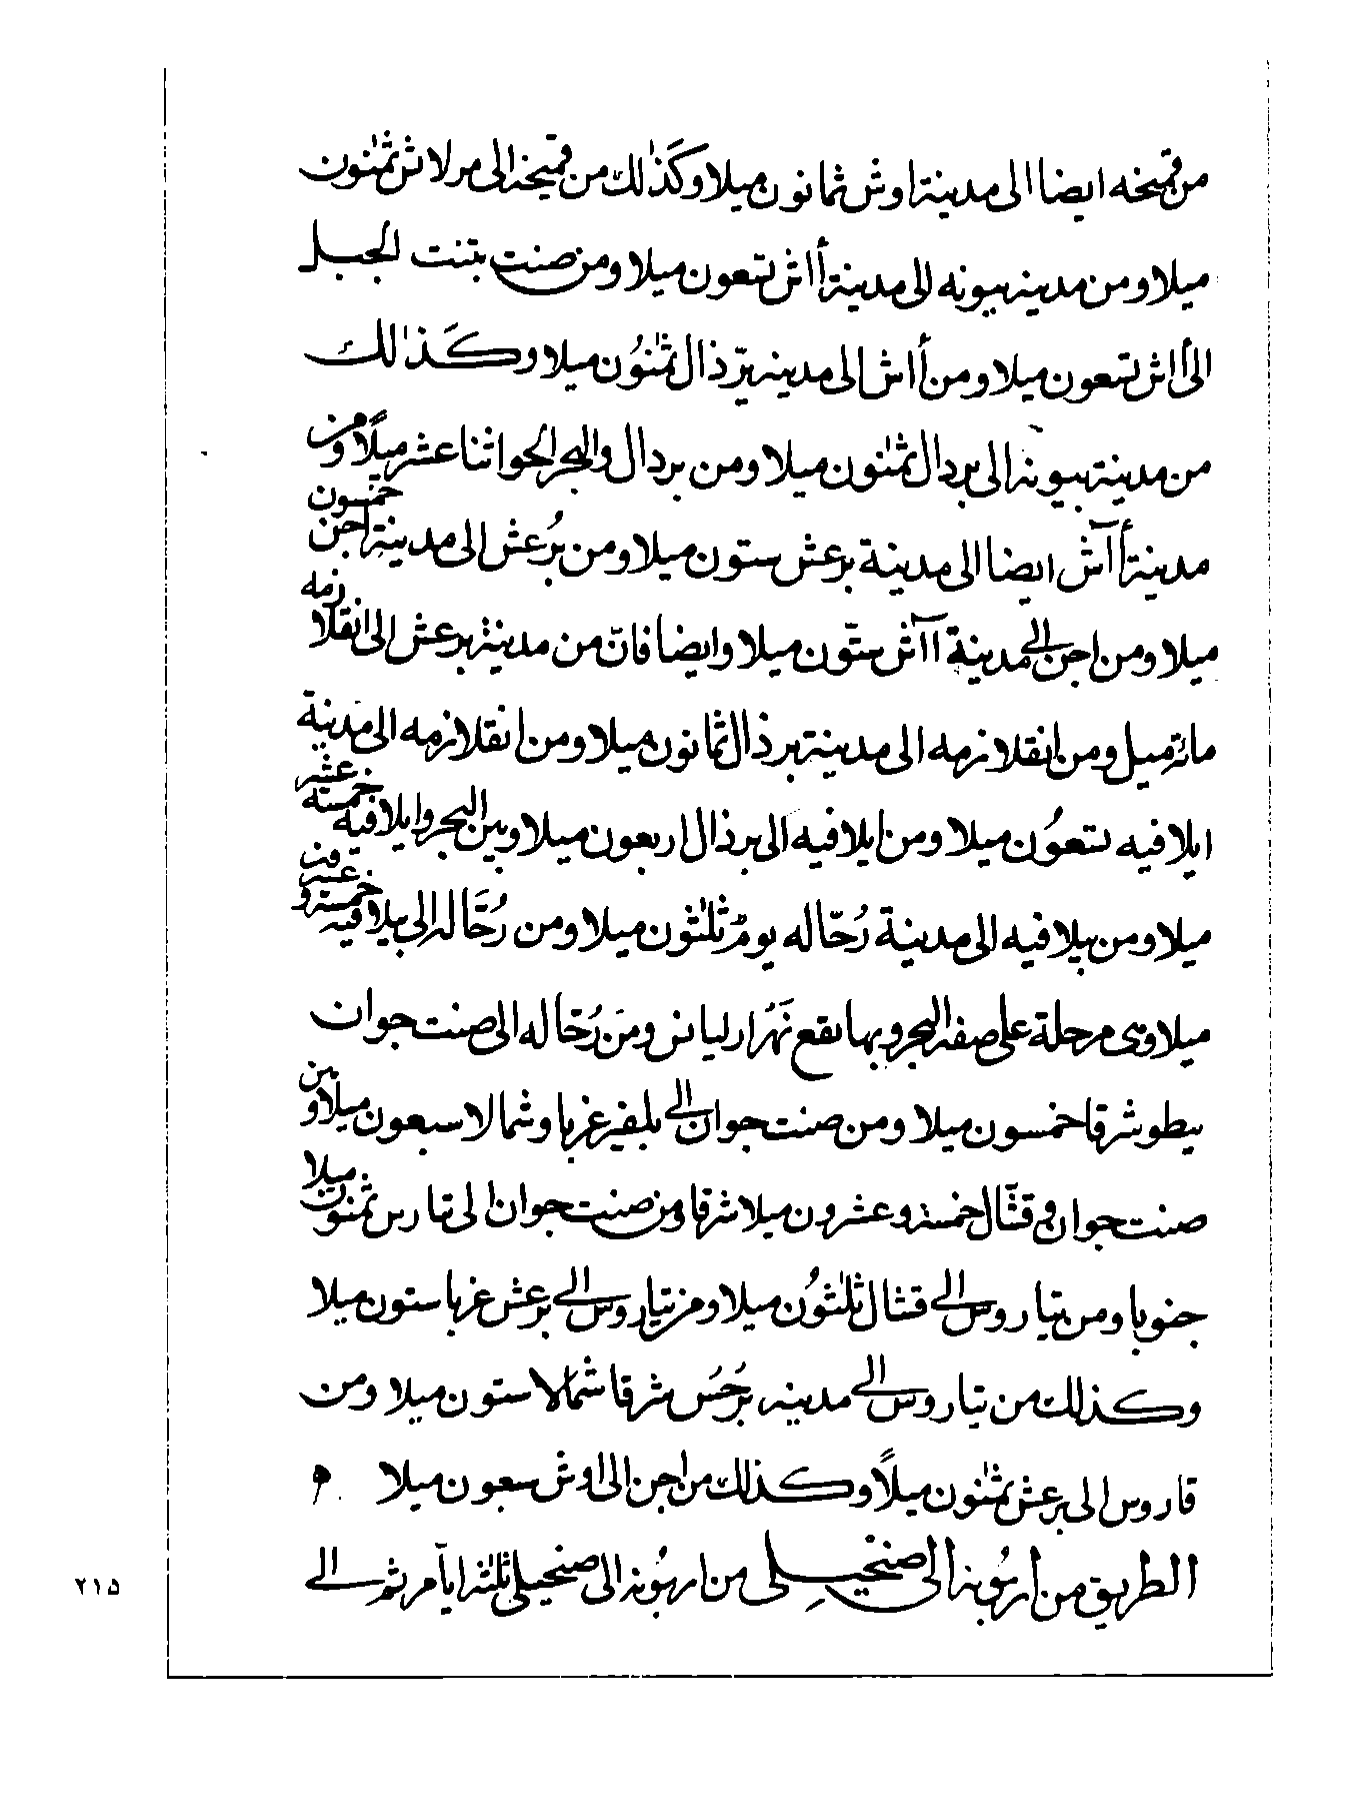 من قميخه ايضا الى مدينة اوش ثمانون ميلا وكذلك من قميخة الى مرلاش ثمنون
ميلا ومن مدينه بيونه الى مدينة أاش تسعون ميلا ومن صنت بتنت الجبل
الى أاش تسعون ميلا ومن أاش الى مدينه برذال ثمنون ميلا وكذلك
من مدينة بيونة الى بردال ثمنون ميلا ومن بردال والبحر الحوا ثنا عشر ميلًا ومن
مدينة أآش ايضا الى مدينة برعش ستون ميلا ومن بُرعش الى مدينة اجن خمسون
ميلا ومن اجن الى مدينة اآش ستّون ميلا وايضا فانّ من مدينة برعش الى انقلازمه
مائة ميل ومن انقلازمه الى مدينة برذال ثمانون ميلا ومن انقلازمه الى مدينة
ايلافيه تسعون ميلا ومن ايلافيه الى برذال اربعون ميلا وبين البحر وايلافيه خمسة عشر
ميلا ومن بيلافيه الى مدينة رُحّاله يومٌ ثلثون ميلا ومن رُحَّاله الى بيلافيه خمسة وعشرون
ميلا وهى مرحلة على ضفة البحر وبها يقع نَهَر ارليانس ومن رُحّاله الى صنت جوان
بيطو شرقا خمسون ميلا ومن صنت جوان الى بلقير غربا وشمالا سبعون ميلا وبين
صنت جوان وقنثال خمسة وعشرون ميلا شرقا ومن صنت جوان الى تيارس ثمنون ميلا
جنوبا ومن تياروس الى قنثال ثلثون ميلا ومن تياروس الى برعش غربا ستون ميلا
وكذلك من تياروس الى مدينه برجس شرقا شمالا ستون ميلا ومن
قاروس الى برعش ثمنون ميلًا وكذلك من اجن الى اوش سبعون ميلا
الطريق من أربونة الى صنجيلى من اربونة الى صنجيلى ثلثة ايام ثم الى
٢١٥